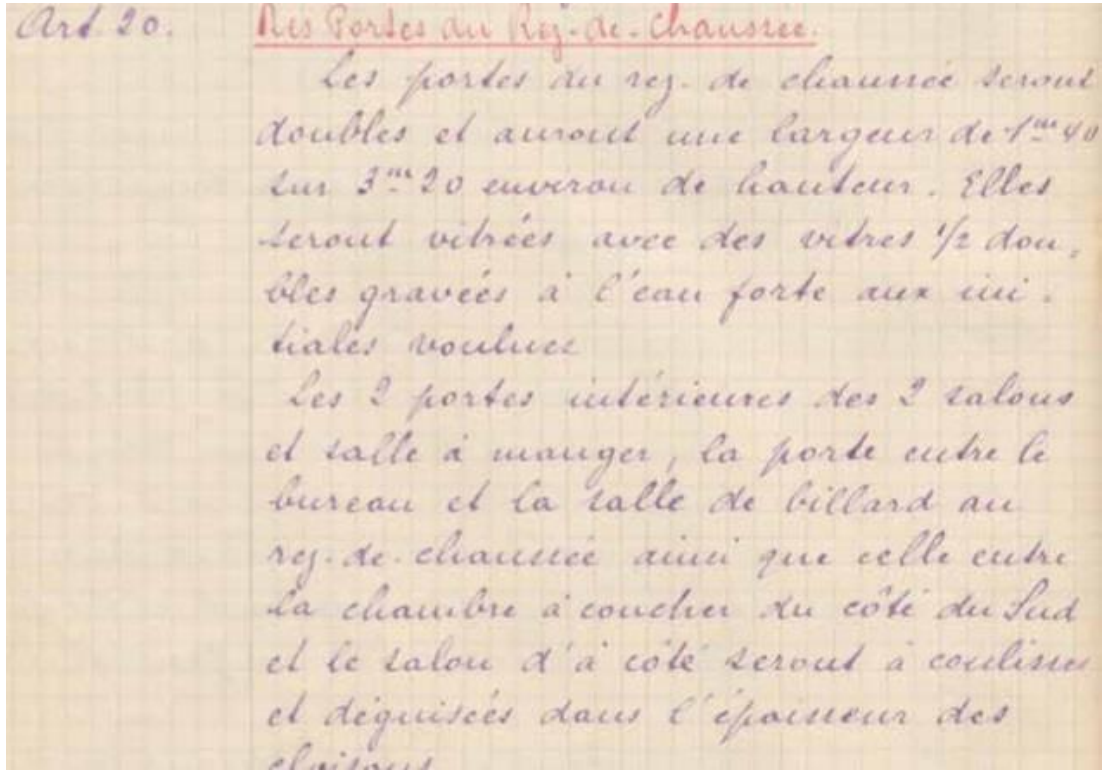 Art. 20. Des Portes du Rez-de-Chaussée.
Les portes du rez-de chaussée seront
doubles et auront une largeur de 1m 40
sur 3m 20 environ de hauteur. Elles
seront vitrées avec des vitres 1/2 dou-
bles gravées à l'eau forte aux ini-
tiales voulues
Les 2 portes intérieures des 2 salons
et salle à manger, la porte entre le
bureau et la salle de billard au
rez-de-chaussée ainsi que celle entre
la chambre à coucher du côté du Sud
et le salon d'à côté seront à coulisses
et déguisées dans l'épaisseur des
cloisons